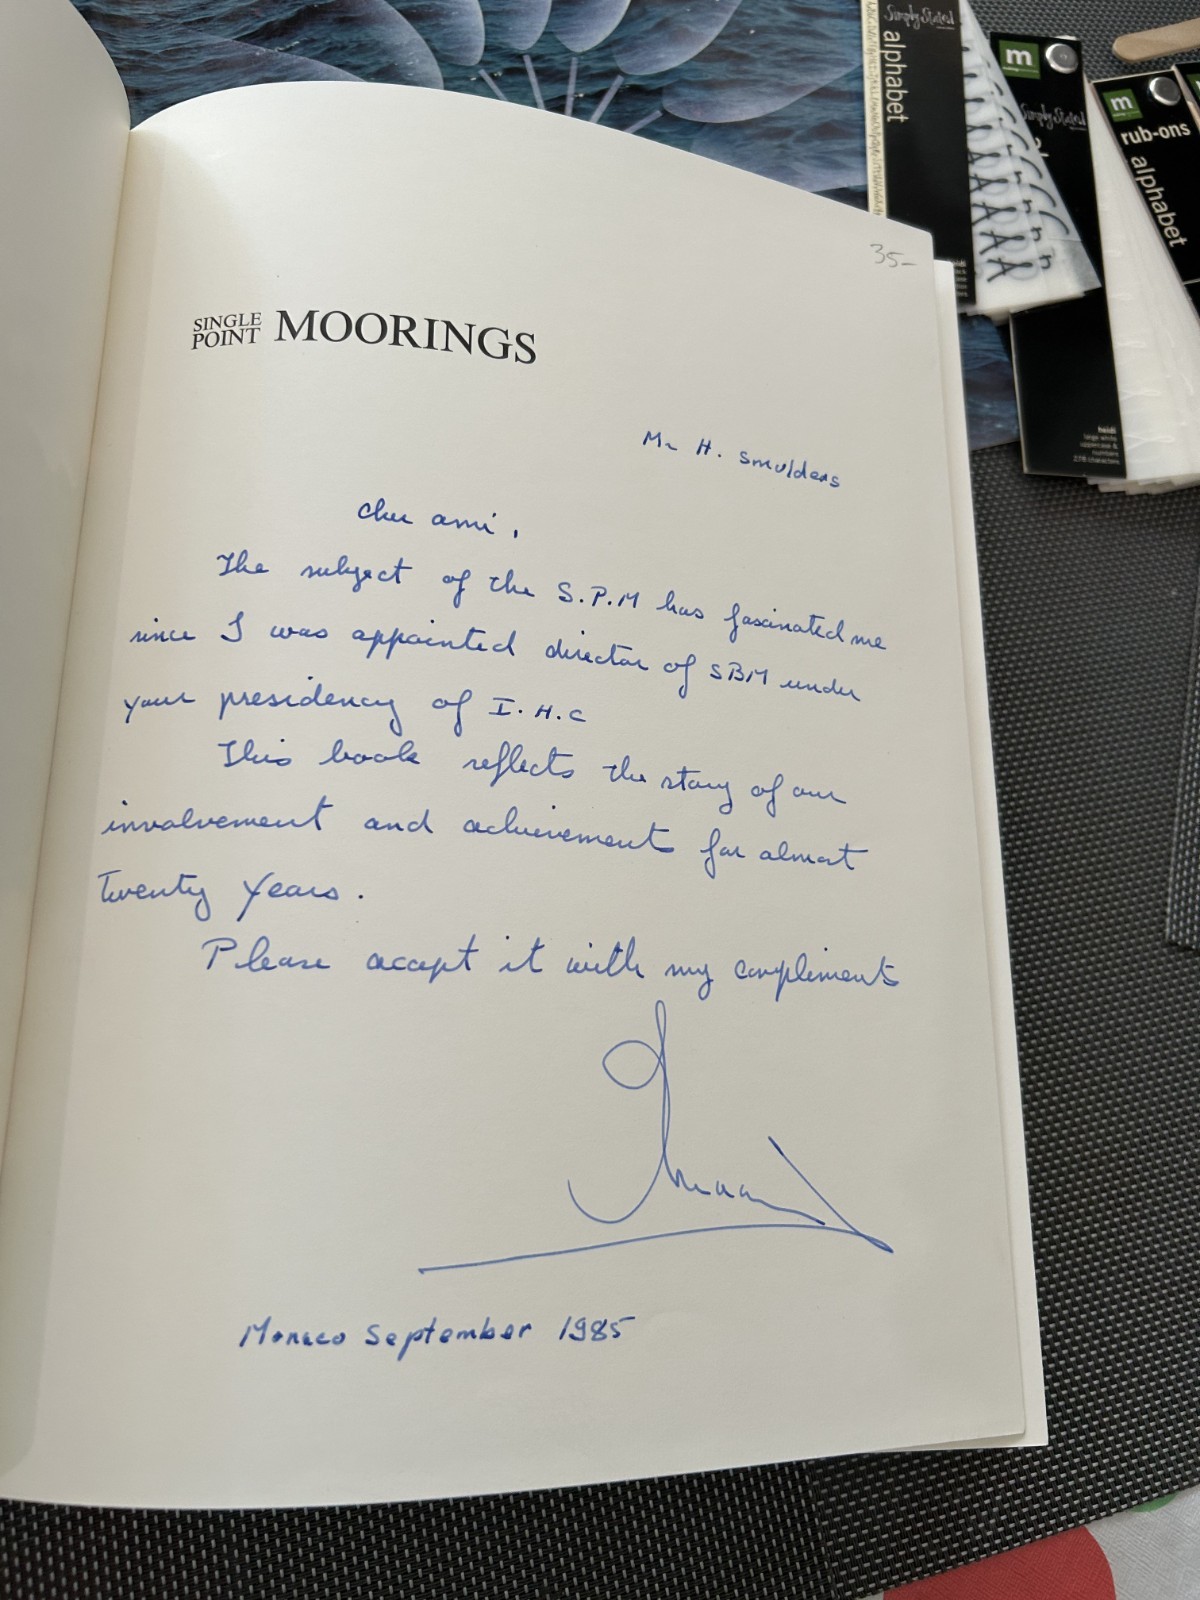 35-
SINGLE
POINT MOORINGS
Mr H. Smulders
Cher ami,
The subject of the S.P.M has fascinated me
since I was appointed director of SBM under
your presidency of I.H.C
This book reflects the story of our
involvement and achievements for almost
Twenty Years.
Please accept it with my compliments
Monaco September 1985
Simply Stated
alphabet
m
Simply Stated
m
rub-ons
alphabet
heidi
large white
uppercase &
numbers
278 characters